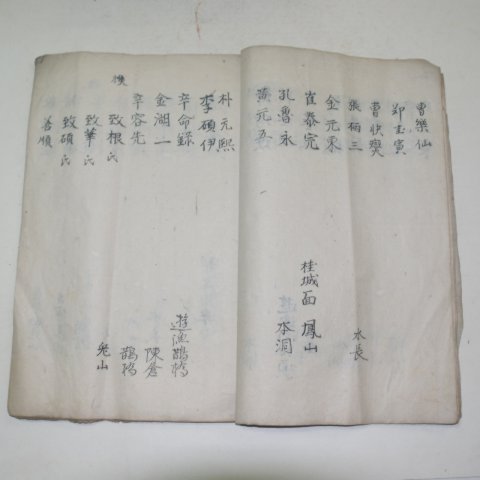 曺樂仙
鄭玉寅
曺快煥
張栢三 水長
金元禾
崔泰完 桂城面 鳳山
孔魯永 本洞
黃元五
朴元熙
李碩伊
卒命錄 遊漁鵲鴣
金湖一 陳倉
辛容先 鵲鴣
致根氏 兎山
致華氏
致碩氏
善順